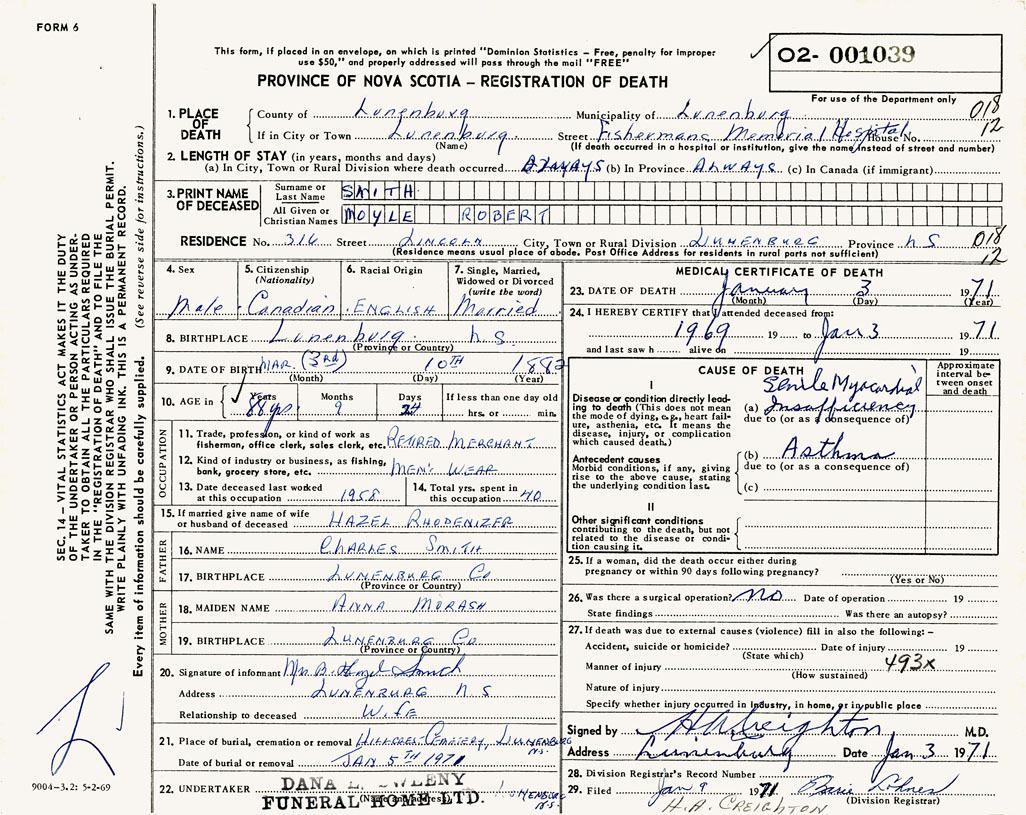 FORM 6
This form, if placed in an envelope, on which is printed "Dominion Statistics – Free, penalty for improper
use $50," and properly addressed will pass through the mail "FREE"
O2- 001039
PROVINCE OF NOVA SCOTIA – REGISTRATION OF DEATH
For use of the Department only
1. PLACE OF DEATH
County of Lunenburg Municipality of Lunenburg 018
If in City or Town Lunenburg Street Fishermans Memorial Hospital House No. 12
(Name) (If death occurred in a hospital or institution, give the name instead of street and number)
2. LENGTH OF STAY (in years, months and days)
(a) In City, Town or Rural Division where death occurred ALWAYS (b) In Province ALWAYS (c) In Canada (if immigrant)
3. PRINT NAME OF DECEASED
Surname or Last Name SMITH
All Given or Christian Names MOYLE ROBERT
RESIDENCE No. 316 Street LINCOLN City, Town or Rural Division LUNENBURG Province N S 018
(Residence means usual place of abode. Post Office Address for residents in rural parts not sufficient) 12
4. Sex
Male
5. Citizenship
(Nationality)
Canadian
6. Racial Origin
ENGLISH
7. Single, Married,
Widowed or Divorced
(write the word)
Married
8. BIRTHPLACE Lunenburg N.S.
(Province or Country)
9. DATE OF BIRTH MAR. (3rd) 10TH 1882
(Month) (Day) (Year)
10. AGE in
Years Months Days If less than one day old
88 yrs. 9 24 hrs. or min.
OCCUPATION
11. Trade, profession, or kind of work as
fisherman, office clerk, sales clerk, etc. RETIRED MERCHANT
12. Kind of industry or business, as fishing,
bank, grocery store, etc. MEN'S WEAR
13. Date deceased last worked
at this occupation 1958
14. Total yrs. spent in
this occupation 40
15. If married give name of wife
or husband of deceased HAZEL RHODENIZER
FATHER
16. NAME CHARLES SMITH
17. BIRTHPLACE LUNENBURG Co
(Province or Country)
MOTHER
18. MAIDEN NAME ANNA MORASH
19. BIRTHPLACE LUNENBURG Co
(Province or Country)
20. Signature of informant Mrs B. Hazel Smith
Address LUNENBURG N S
Relationship to deceased Wife
21. Place of burial, cremation or removal HILLCREST CEMETERY, LUNENBURG
N.S.
Date of burial or removal JAN 5TH 1971
22. UNDERTAKER DANA L. SWEENY
FUNERAL HOME LTD. LUNENBURG
(Name and address) N.S.
MEDICAL CERTIFICATE OF DEATH
23. DATE OF DEATH January 3 1971
(Month) (Day) (Year)
24. I HEREBY CERTIFY that I attended deceased from:
1969 19 to Jan 3 1971
and last saw h alive on 19
CAUSE OF DEATH
Approximate
interval be-
tween onset
and death
I
Disease or condition directly lead-
ing to death (This does not mean
the mode of dying, e.g., heart fail-
ure, asthenia, etc. It means the
disease, injury, or complication
which caused death.)
Senile Myocardial
(a) Insufficiency
due to (or as a consequence of)
Antecedent causes
Morbid conditions, if any, giving
rise to the above cause, stating
the underlying condition last.
(b) Asthma
due to (or as a consequence of)
(c)
II
Other significant conditions
contributing to the death, but not
related to the disease or condi-
tion causing it.
25. If a woman, did the death occur either during
pregnancy or within 90 days following pregnancy?
(Yes or No)
26. Was there a surgical operation? NO Date of operation 19
State findings Was there an autopsy?
27. If death was due to external causes (violence) fill in also the following: –
Accident, suicide or homicide? Date of injury 19
(State which)
Manner of injury 493x
(How sustained)
Nature of injury
Specify whether injury occurred in industry, in home, or in public place
Signed by H A Creighton M.D.
Address Lunenburg Date Jan 3 1971
28. Division Registrar's Record Number
29. Filed Jan 9 1971
(Division Registrar)
H.A. CREIGHTON
SEC. 14 – VITAL STATISTICS ACT MAKES IT THE DUTY
OF THE UNDERTAKER OR PERSON ACTING AS UNDER-
TAKER TO OBTAIN ALL THE PARTICULARS REQUIRED
IN THE "REGISTRATION OF DEATH" AND TO FILE THE
SAME WITH THE DIVISION REGISTRAR WHO SHALL ISSUE THE BURIAL PERMIT.
WRITE PLAINLY WITH UNFADING INK. THIS IS A PERMANENT RECORD.
Every item of information should be carefully supplied. (See reverse side for instructions.)
9004–3.2: 5-2-69